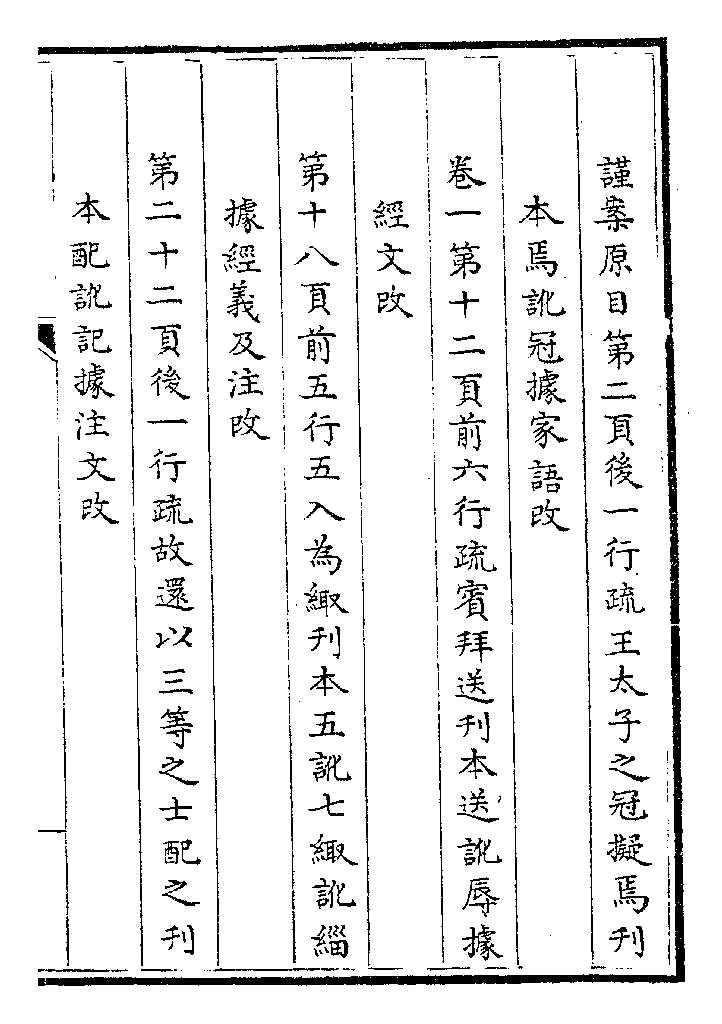 謹案原目第二頁後一行疏王太子之冠擬焉刊
本焉訛冠據家語改
卷一第十二頁前六行疏賓拜送刊本送訛辱據
經文改
第十八頁前五行五入為緅刊本五訛七緅訛緇
據經義及注改
第二十二頁後一行疏故還以三等之士配之刊
本配訛記據注文改